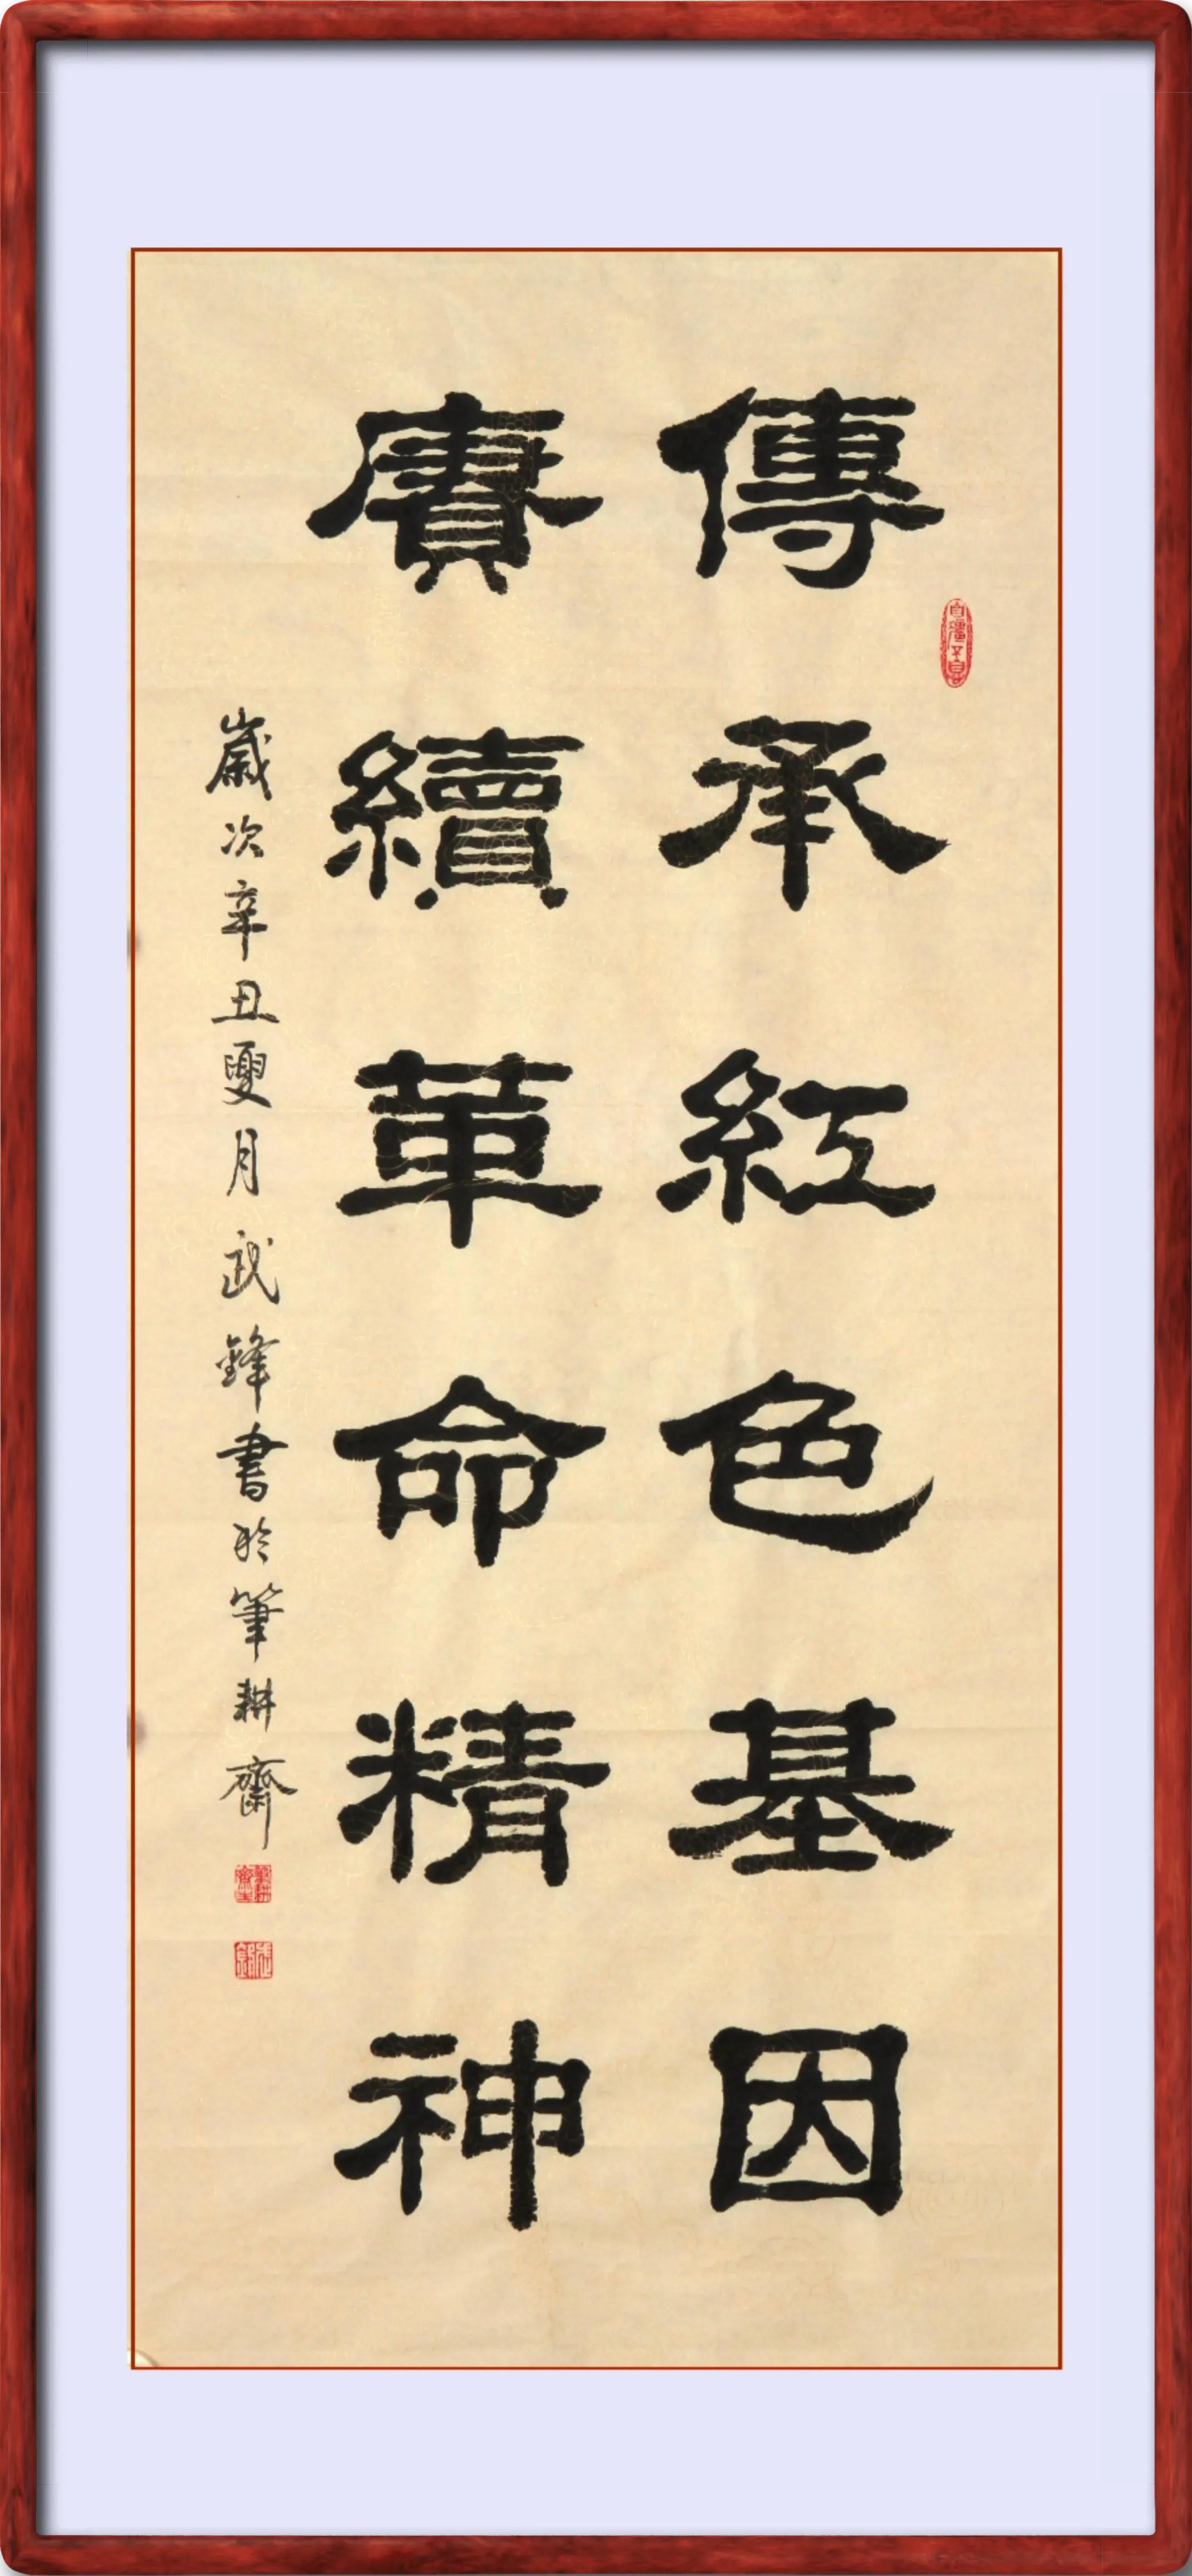 傳承紅色基因
賡續革命精神
歲次辛丑夏月武鋒書於筆耕齋
自彊不息